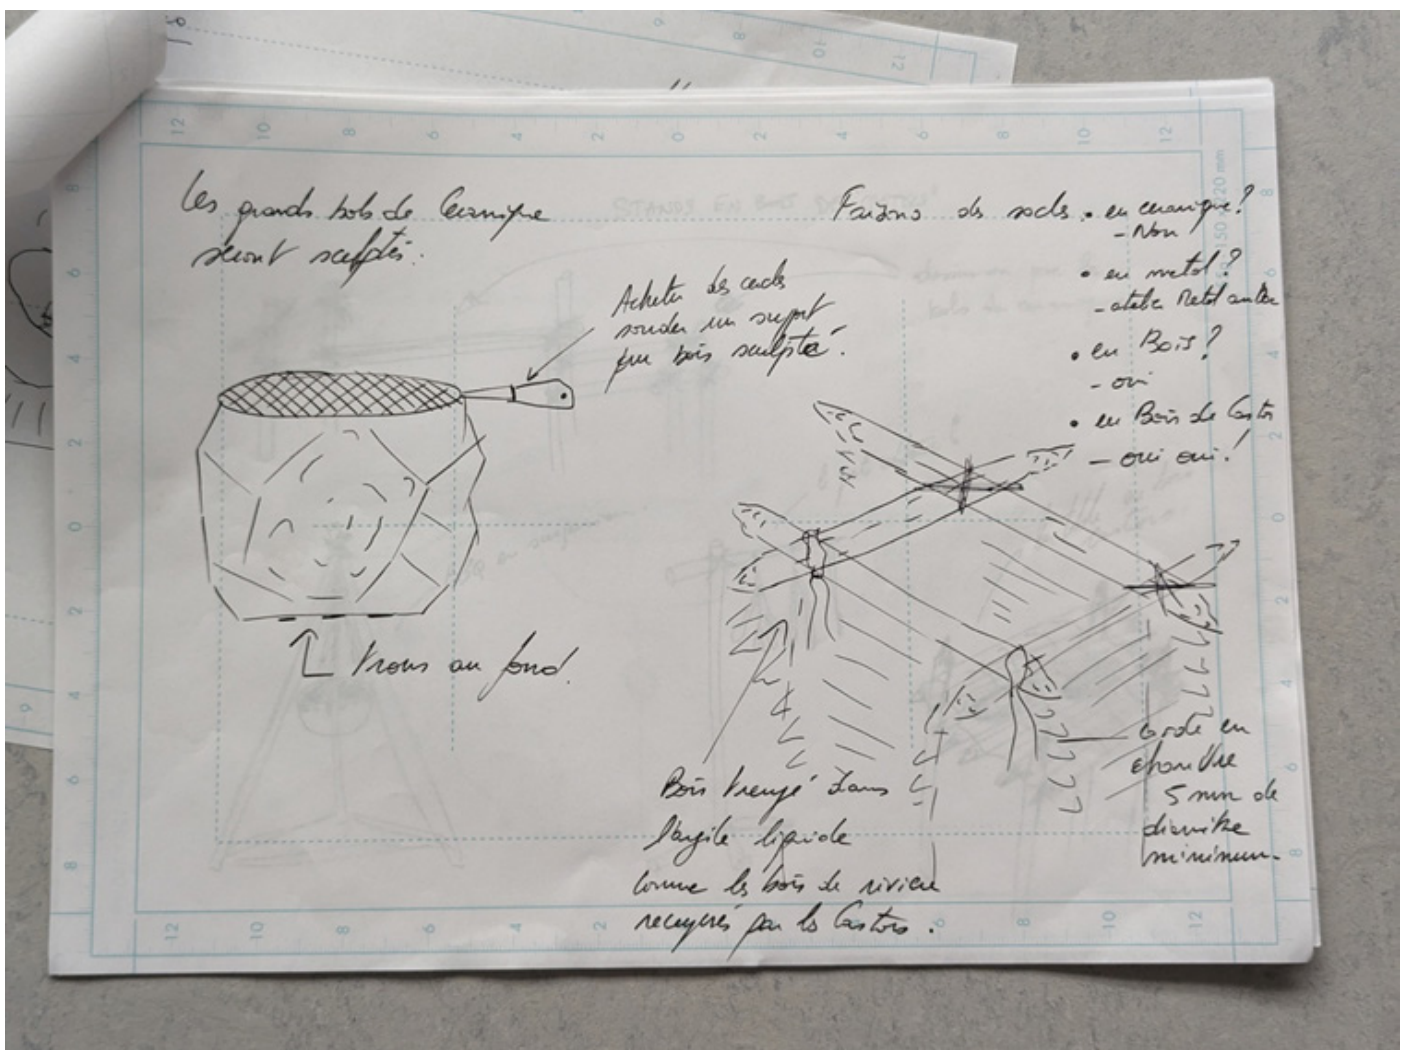 Les grands bols de Ceramique
seront sculptés.
Acheter des cercles
souder un suport
pour bois sculpté.
trous au fond.
Faisons des socles
• en ceramique?
- Non
• en metal?
- atelier Metal
• en Bois?
- oui
• en Bois de Castor
- oui oui!
Bois trempé dans
l'argile liquide
comme les bois de riviere
recuperés par les Castors.
corde en
chanvre
5 mm de
diamitre
minimum
150 x 220 mm
12 10 8 6 4 2 0 2 4 6 8 10 12
8 6 4 2 0 2 4 6 8
12 10 8 6 4 2 6 8 10 12